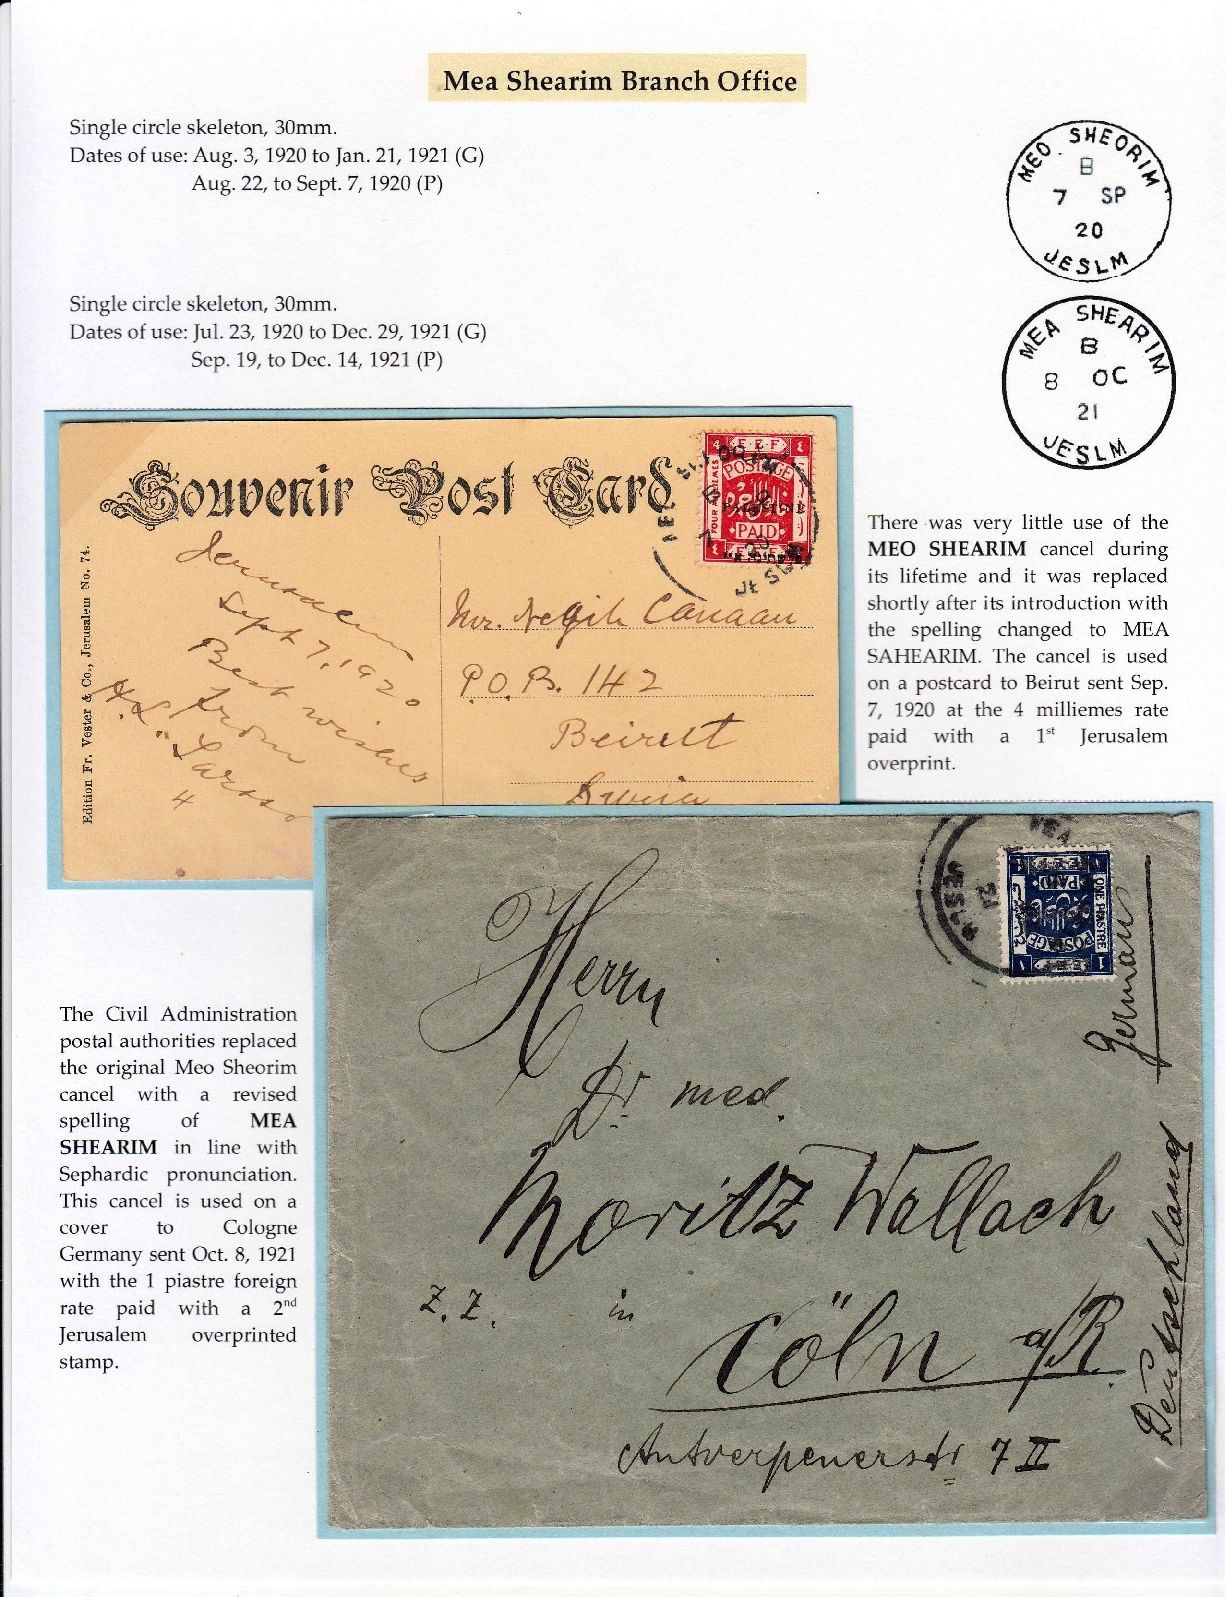 Mea Shearim Branch Office
Single circle skeleton, 30mm.
Dates of use: Aug. 3, 1920 to Jan. 21, 1921 (G)
Aug. 22, to Sept. 7, 1920 (P)
MEO SHEORIM
B
7 SP
20
JESLM
Single circle skeleton, 30mm.
Dates of use: Jul. 23, 1920 to Dec. 29, 1921 (G)
Sep. 19, to Dec. 14, 1921 (P)
MEA SHEARIM
B
8 OC
21
JESLM
Souvenir Post Card
Edition Fr. Vester & Co., Jerusalem No. 74.
E.E.F
POSTAGE
FOUR MILLIEMES
PAID
Jerusalem
Sept 7, 1920
Best wishes
from
Larsson
4
Mr. Negib Canaan
P.O.B. 142
Beirut
Syria
There was very little use of the
MEO SHEARIM cancel during
its lifetime and it was replaced
shortly after its introduction with
the spelling changed to MEA
SAHEARIM. The cancel is used
on a postcard to Beirut sent Sep.
7, 1920 at the 4 milliemes rate
paid with a 1st Jerusalem
overprint.
The Civil Administration
postal authorities replaced
the original Meo Sheorim
cancel with a revised
spelling of MEA
SHEARIM in line with
Sephardic pronunciation.
This cancel is used on a
cover to Cologne
Germany sent Oct. 8, 1921
with the 1 piastre foreign
rate paid with a 2nd
Jerusalem overprinted
stamp.
MEA
JESLM
21
E.E.F
PAID
POSTAGE
ONE PIASTRE
Herrn
Dr med.
Moritz Wallach
z. Z. in
Cöln a/R.
Antwerpenerstr 7 II
Germany
Deutschland